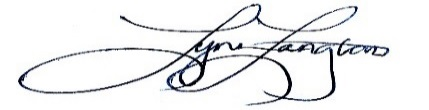 Lynn Langton